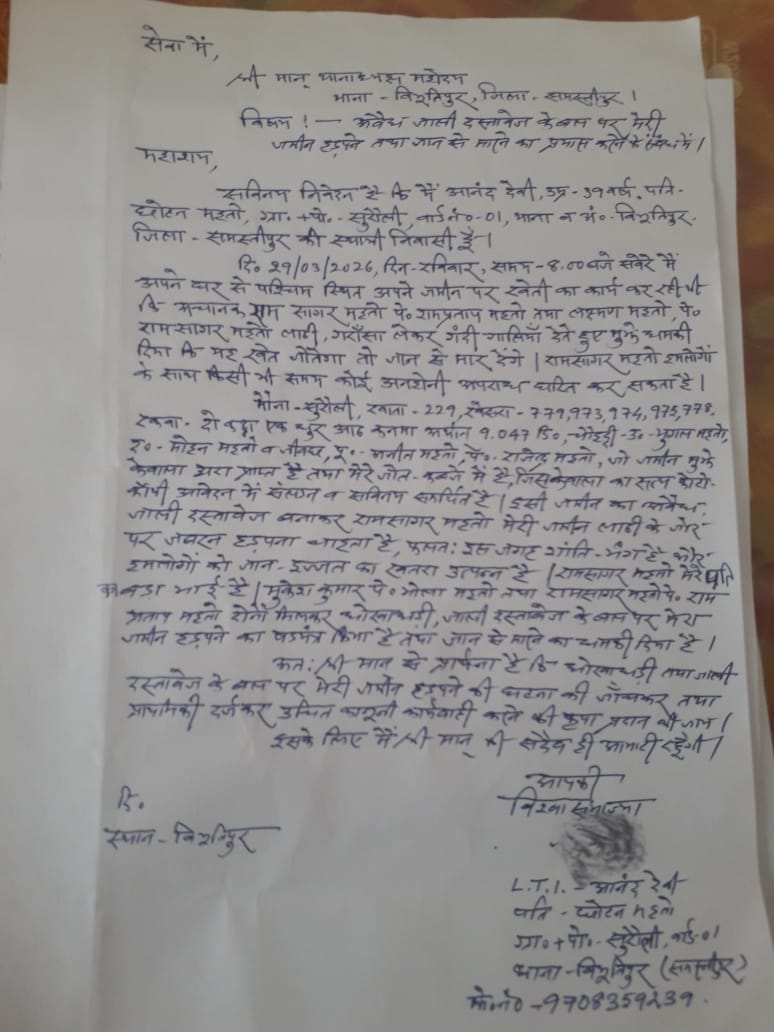 सेवा में,
श्री मान् थानाध्यक्ष महोदय
थाना - विभूतिपुर, जिला - समस्तीपुर।
विषय :- अवैध जाली दस्तावेज के बल पर मेरी
जमीन हड़पने तथा जान से मारने का प्रयास करने के संबंध में।
महाशय,
सविनय निवेदन है कि मैं आनंद देवी, उम्र - 39 वर्ष, पति -
छोटन महतो, ग्रा०+पो०- सुरौली, वार्ड नं०-01, थाना व अं०- विभूतिपुर.
जिला - समस्तीपुर की स्थायी निवासी हूँ।
दि० 29/03/2026, दिन- रविवार, समय - 8.00 बजे सवेरे में
अपने घर से पश्चिम स्थित अपने जमीन पर खेती का कार्य कर रही थी
कि अचानक राम सागर महतो पे० रामप्रताप महतो तथा लक्ष्मण महतो, पे०
रामसागर महतो लाठी, गराँसा लेकर गंदी गालियाँ देते हुए मुझे धमकी
दिया कि यह खेत जोतेगा तो जान से मार देंगे। रामसागर महतो हमलोगों
के साथ किसी भी समय कोई अनहोनी अपराध घटित कर सकता है।
मौजा - सुरौली, खाता - 229, खेसरा - 779,973,974,975,778,
रकवा - दो कट्ठा एक धुर आठ कनमा अर्थात 9.047 डि०, चौहद्दी - उ०- भुगाल महतो,
द०- मोहन महतो व पू०- अजीत महतो, प०- राजेन्द्र महतो, जो जमीन मुझे
केवाला द्वारा प्राप्त है तथा मेरे जोत-कब्जे में है, जिस केवाला का सत्य फोटो-
कॉपी आवेदन में संलग्न व सविनय समर्पित है। इसी जमीन का अवैध,
जाली दस्तावेज बनाकर रामसागर महतो मेरी जमीन लाठी के जोर
पर जबरन हड़पना चाहता है, फलतः इस जगह शांति-भंग है और
हमलोगों को जान-इज्जत का खतरा उत्पन्न है। रामसागर महतो मेरे पति
का बड़ा भाई है। मुकेश कुमार पे० भोला महतो तथा रामसागर महतो पे० राम
प्रताप महतो दोनों मिलकर धोखाधड़ी, जाली दस्तावेज के बल पर मेरा
जमीन हड़पने का षडयंत्र किया है तथा जान से मारने का धमकी दिया है।
अतः श्री मान से प्रार्थना है कि धोखाधड़ी तथा जाली
दस्तावेज के बल पर मेरी जमीन हड़पने की घटना की जाँचकर तथा
प्राथमिकी दर्जकर उचित कानूनी कार्यवाही करने की कृपा प्रदान की जाय।
इसके लिए मैं श्री मान् की सदैव ही आभारी रहूँगी।
आपकी
विश्वासभाजन
दि०
स्थान - विभूतिपुर
L.T.I. - आनंद देवी
पति - छोटन महतो
ग्रा०+पो०- सुरौली, वार्ड-01
थाना - विभूतिपुर (समस्तीपुर)
मो० नं० - 9708359239.